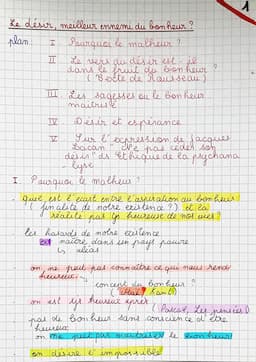 1
Le désir, meilleur ennemi du bonheur ?
plan
I Pourquoi le malheur ?
II Le vers du désir est-il
dans le fruit du bonheur ?
(Ecole de Rousseau)
III Les sagesses ou le bonheur
maitrisé
IV Désir et espérance
V Sur l'expression de Jacques
Lacan " Ne pas céder son
désir" ds Ethique de la psychana
lyse
I Pourquoi le malheur ?
quel est l'écart entre l'aspiration au bonheur
(finalité de notre existence ?) et la
réalité pas tjs heureuse de nos vies ?
les hasards de notre existence
ex naître dans un pays pauvre
↳ aléas
on ne peut pas connaître ce qui nous rend
heureux.
concept du bonheur
Kant
on est tjs heureux après (Pascal, Les pensées)
pas de bonheur sans conscience d'être
heureux
on ne peut pas maîtriser le bonheur
on désire l'impossible